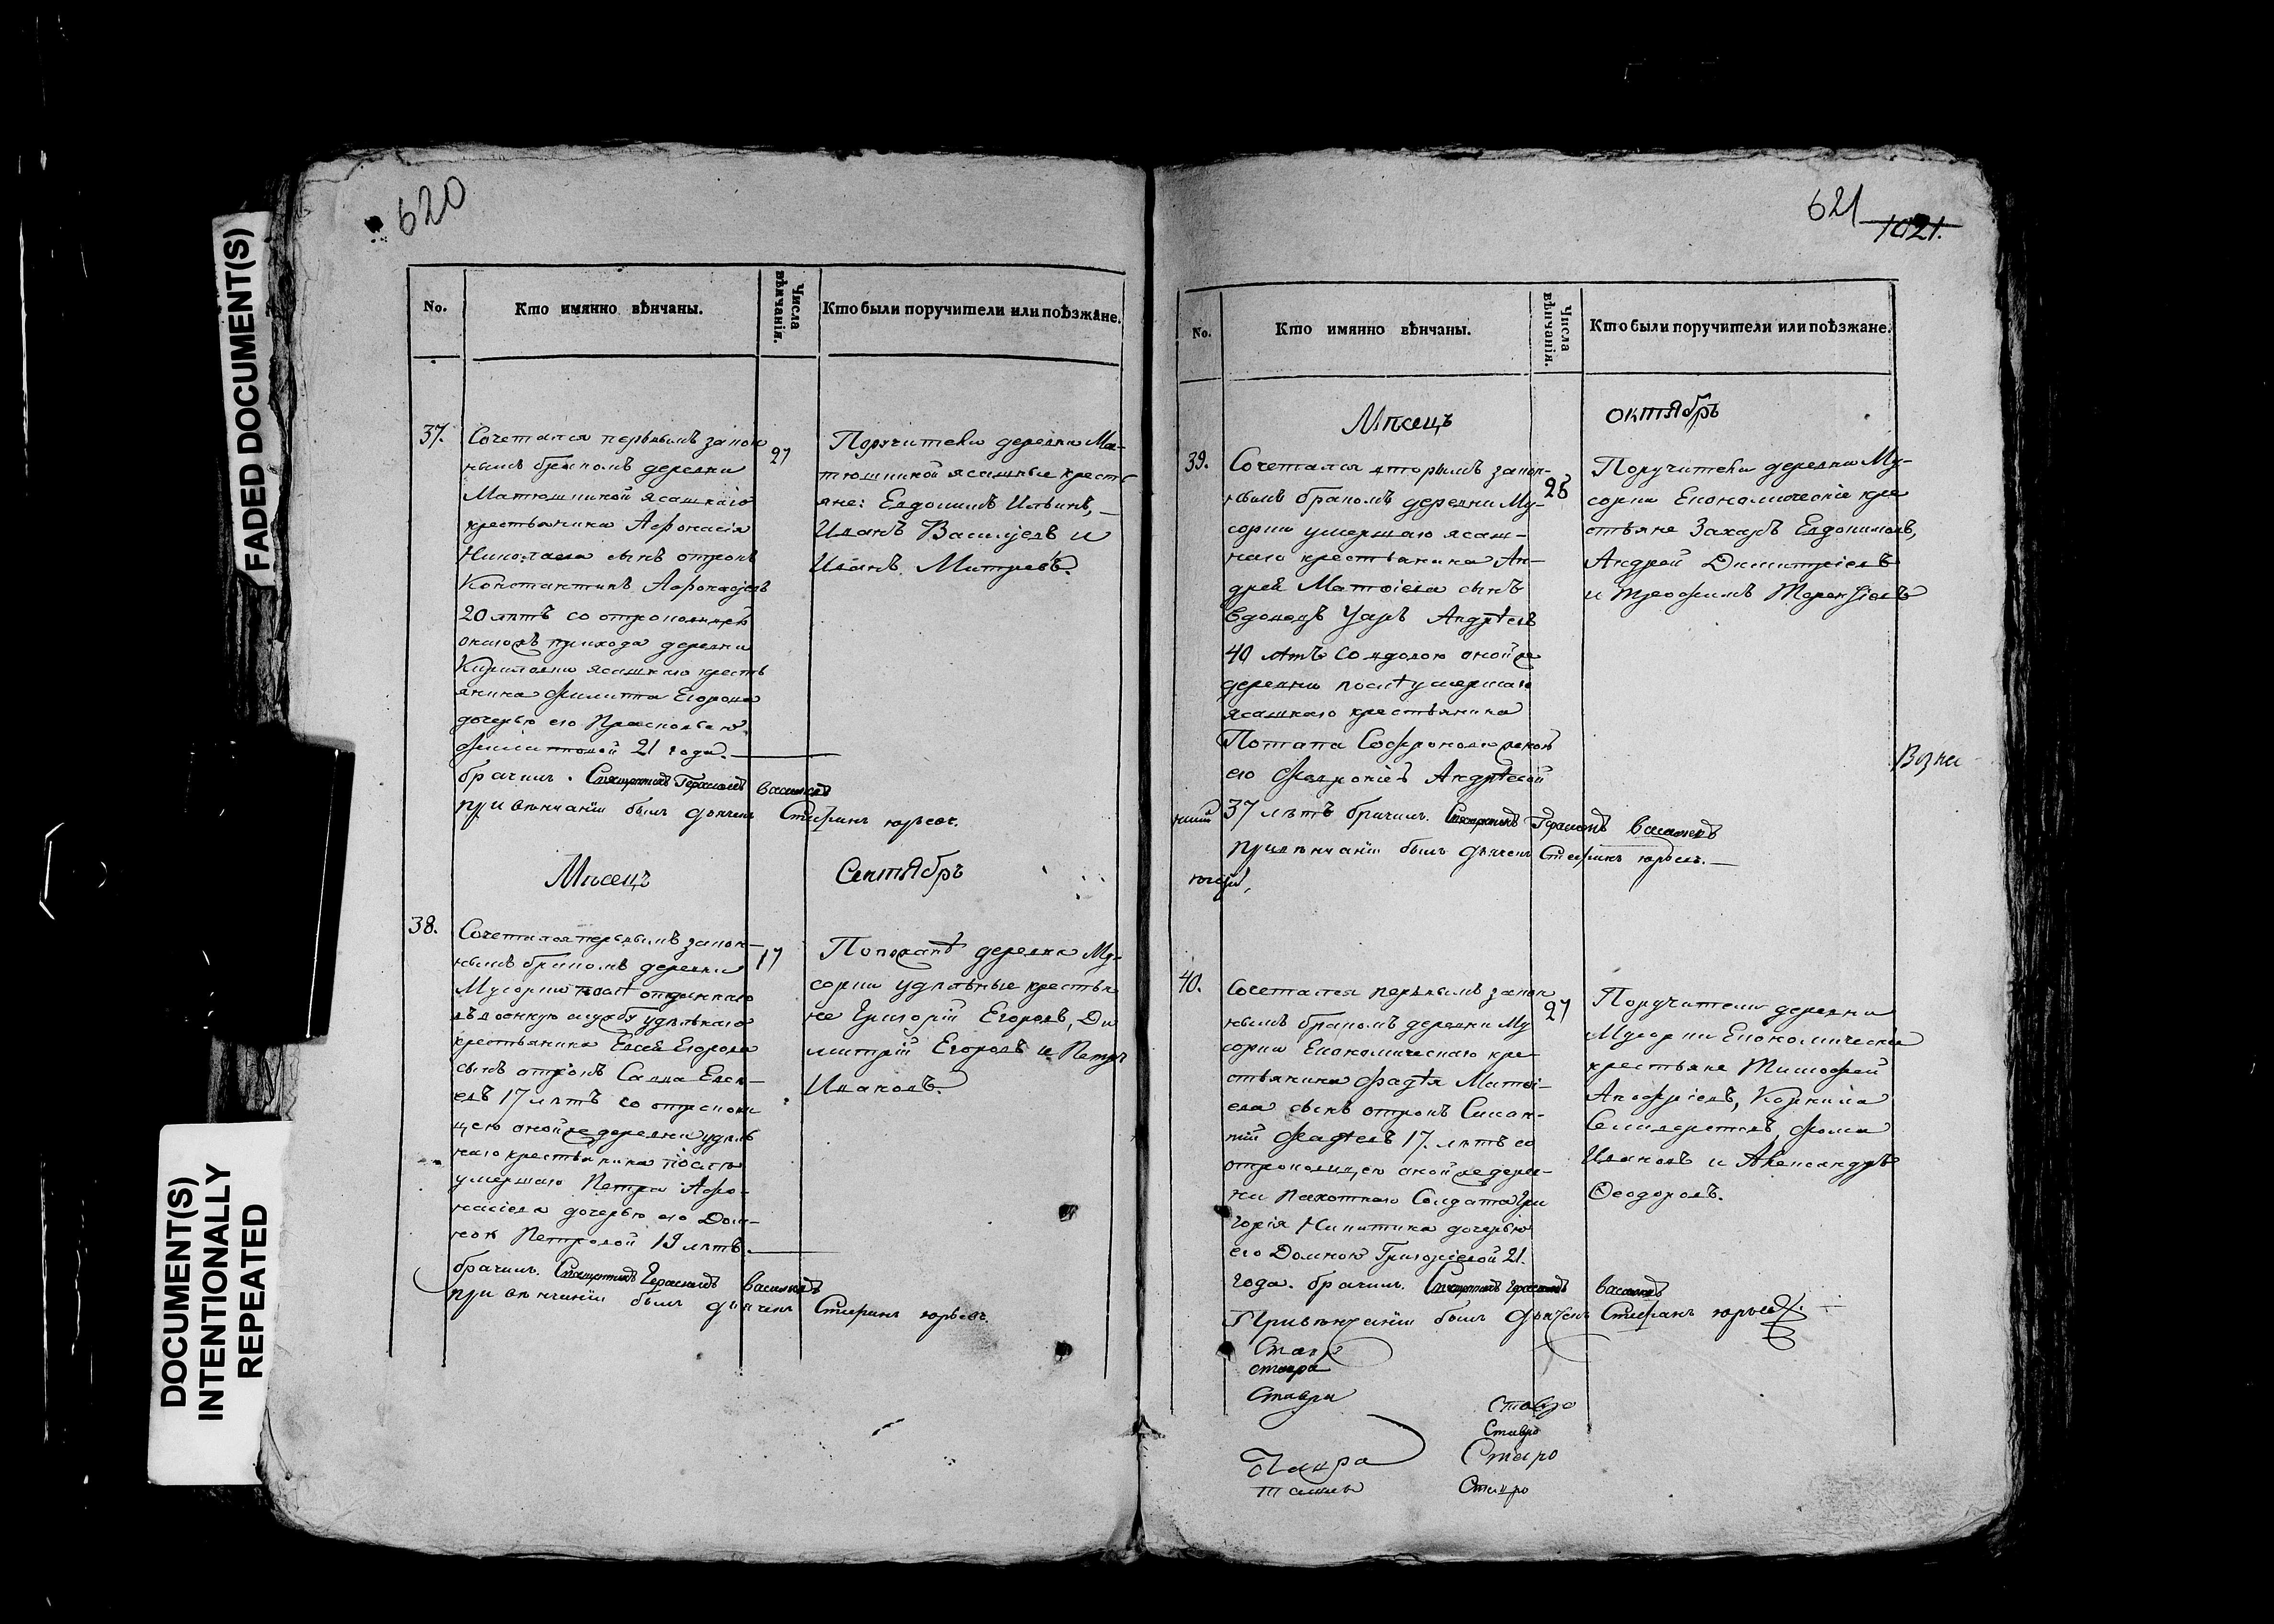 FADED DOCUMENT(S)
DOCUMENT(S)
INTENTIONALLY
REPEATED
620
No.
Кто имянно вѣнчаны.
Числа вѣнчанія.
Кто были поручители или поѣзжане.
37.
Сочетался первымъ закон
нымъ бракомъ деревни
Матюшкиной ясашнаго
крестьянина Афонасія
Николаева сынъ отрокъ
Константинъ Афонасьевъ
20 лѣтъ со отроковицею
онагожъ прихода деревни
ясашнаго кресть
янина Филиппа Егорова
дочерью его Прасковьею
Филипповой 21 года.
брачил. Священникъ Герасимъ Васильевъ
при вѣнчаніи былъ дьячекъ Стефанъ юрьевъ.
27
Поручители деревни Ма-
тюшкиной ясашные кресть
яне: Евдокимъ Ильинъ,
Иванъ Васильевъ и
Иванъ Митревъ.
Мѣсецъ
Сентябръ
38.
Сочетался первымъ закон-
нымъ бракомъ деревни
Мусорки послѣ отданнаго
въ военную службу удѣльнаго
крестьянина Евсея Егорова
сынъ отрокъ Савва Евсе-
евъ 17 лѣтъ со отрокови
цею оной же деревни удѣль
наго крестьянина послѣ
умершаго Петра Афо-
насіева дочерью его Дом-
ною Петровой 19 лѣтъ.
брачил. Священникъ Герасимъ Васильевъ
при вѣнчаніи былъ дьячекъ Стефанъ юрьевъ.
17
деревни Му-
сорки удѣльные крестья
не Григорій Егоровъ, Ди
митрій Егоровъ и Петръ
Ивановъ.
621
1021.
No.
Кто имянно вѣнчаны.
Числа вѣнчанія.
Кто были поручители или поѣзжане.
Мѣсецъ
октябръ
39.
Сочетался вторымъ закон-
нымъ бракомъ деревни Му-
сорки умершаго ясаш-
наго крестьянина Ан-
дрея Матвіева сынъ
вдовецъ Уаръ Андрѣевъ
40 лѣтъ со вдовою оной же
деревни послѣ умершаго
ясашнаго крестьянина
Потапа Софронова женою
его Февроніей Андрѣевой
37 лѣтъ брачил. Священникъ Герасимъ Васильевъ
при вѣнчаніи былъ дьячекъ Стефанъ юрьевъ.
Поручители деревни Му-
сорки Економическіе кре
стьяне Захаръ Евдокимовъ,
Андрей Димитріевъ
и Трофимъ Терентіевъ
Возне
40.
Сочетался первымъ закон
нымъ бракомъ деревни Му
сорки Економическаго кре-
стьянина Фадѣя Матві-
ева сынъ отрокъ
Фадѣевъ 17. лѣтъ со
отроковицею оной же дерев-
ни Пахотнаго Солдата Гри
горія Никитина дочерью
его Домною Григоріевой 21.
года. брачил. Священникъ Герасимъ Васильевъ
При вѣнчаніи былъ дьячекъ Стефанъ юрьевъ.
27
Поручители деревни
Мусорки Економическіе
крестьяне Тимофей
Корнила
Селиверстовъ, Фома
Ивановъ и Александръ
Ѳеодоровъ.
Ставра
Ставро
Ставро